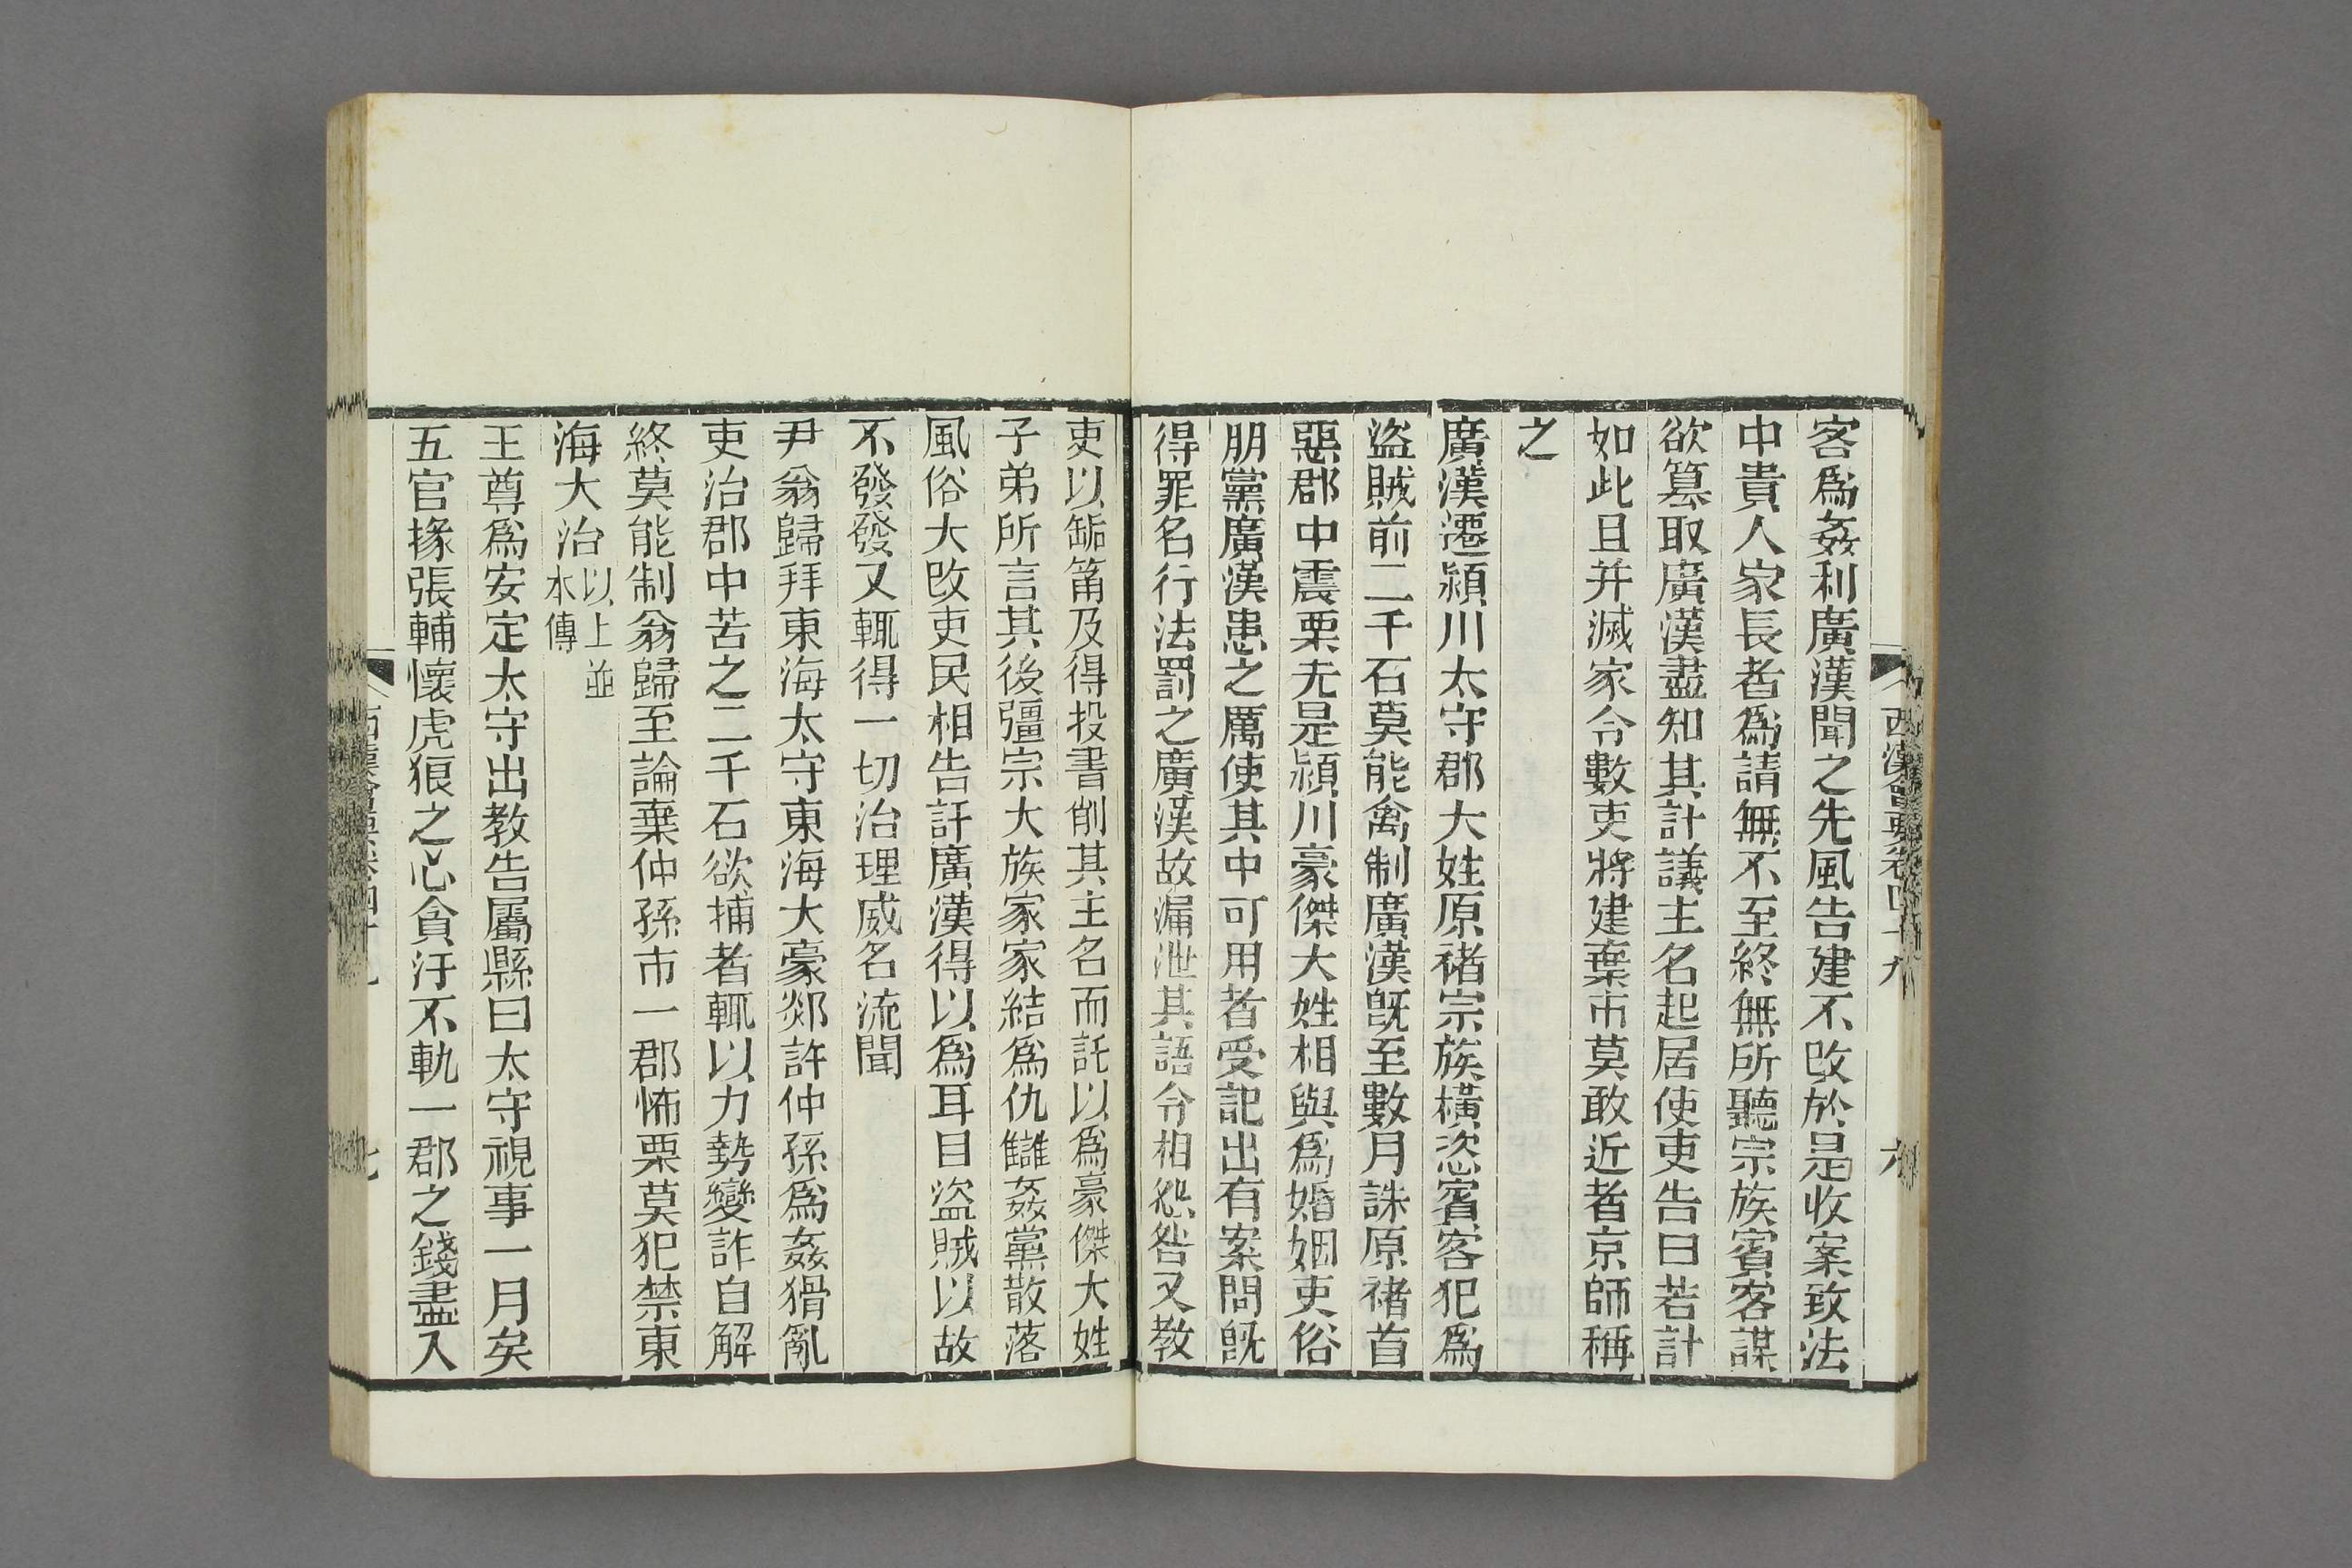 客爲姦利廣漢聞之先風告建不改於是收案致法
中貴人家長者爲請無不至終無所聽宗族賓客謀
欲篡取廣漢盡知其計議主名起居使吏告曰若計
如此且并滅家令數吏將建棄市莫敢近者京師稱
之
廣漢遷潁川太守郡大姓原褚宗族橫恣賓客犯爲
盜賊前二千石莫能禽制廣漢旣至數月誅原褚首
惡郡中震栗先是潁川豪傑大姓相與爲婚姻吏俗
朋黨廣漢患之厲使其中可用者受記出有案問旣
得罪名行法罰之廣漢故漏泄其語令相怨咎又教
吏以缿筩及得投書削其主名而託以爲豪傑大姓
子弟所言其後彊宗大族家家結爲仇讎姦黨散落
風俗大改吏民相告訐廣漢得以爲耳目盜賊以故
不發發又輒得一切治理威名流聞
尹翁歸拜東海太守東海大豪郯許仲孫爲姦猾亂
吏治郡中苦之二千石欲捕者輒以力勢變詐自解
終莫能制翁歸至論棄仲孫市一郡怖栗莫犯禁東
海大治以上並本傳
王尊爲安定太守出教告屬縣曰太守視事一月矣
五官掾張輔懷虎狼之心貪汙不軌一郡之錢盡入
西漢會要卷四十九
六